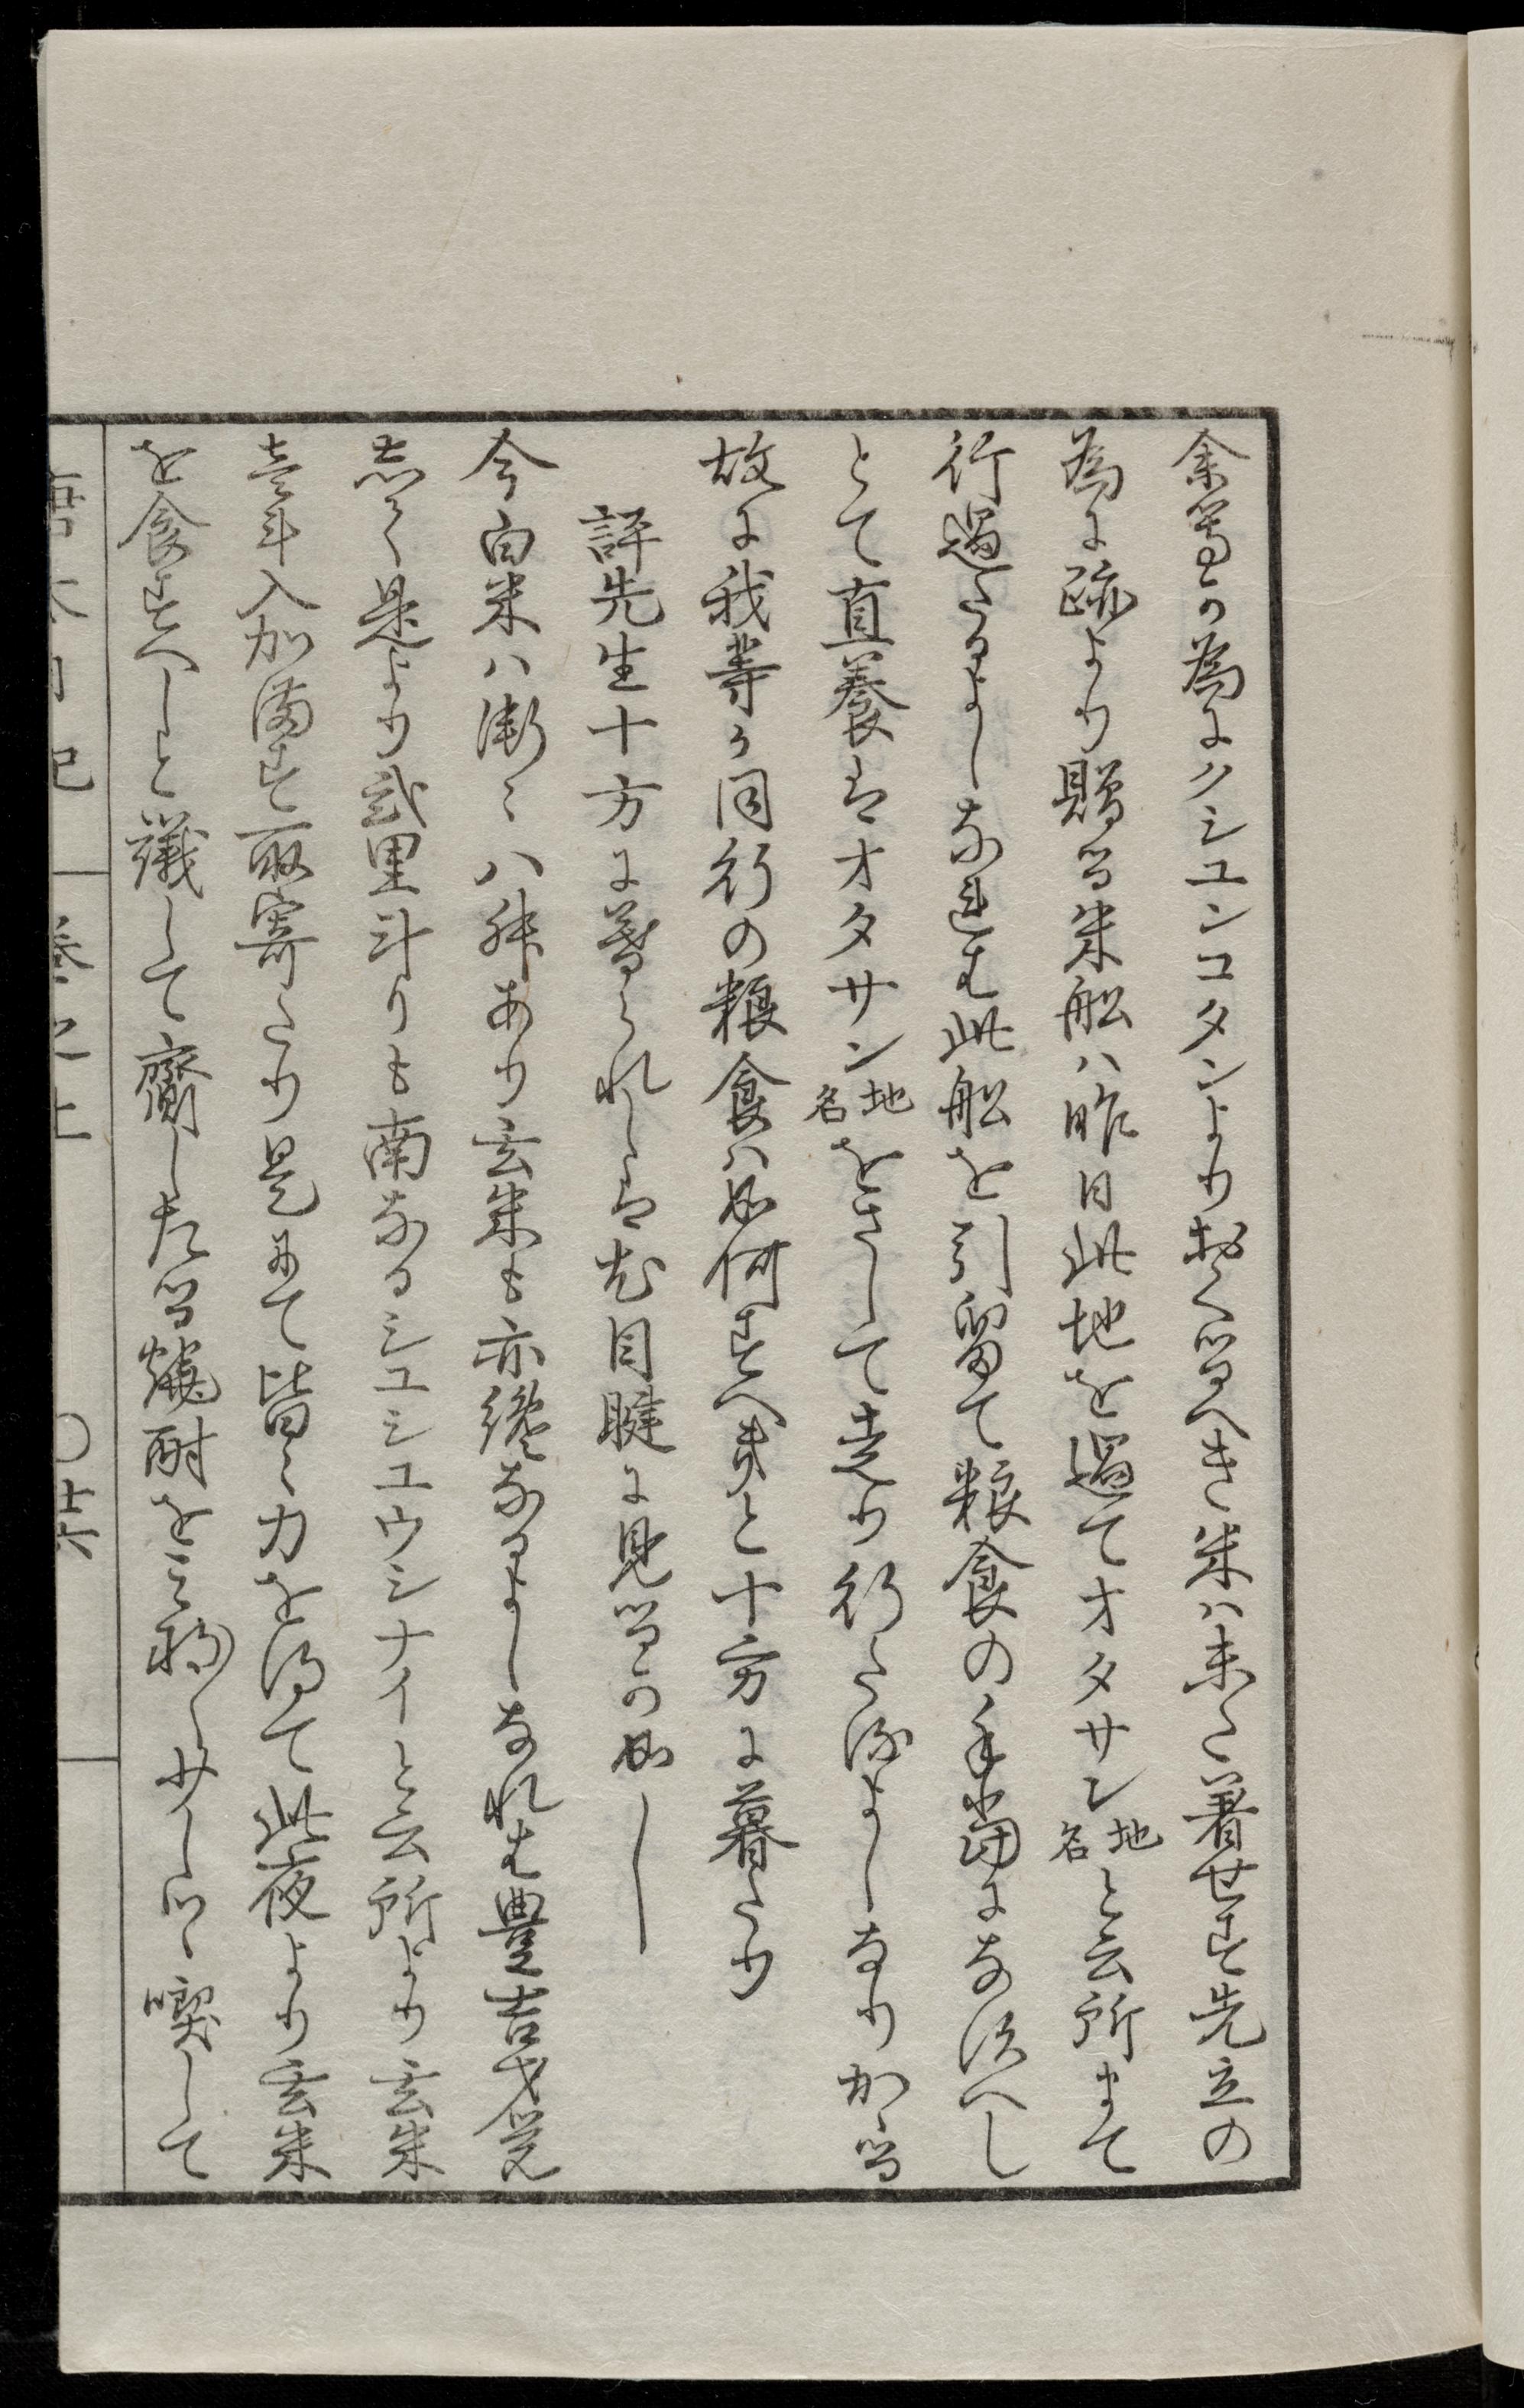 余等か為にクシユンコタンより出くるへき米は未た着せす先立の
為に疏より贈る米船ハ昨日此地を過てオタサン地名と云所まて
行過たるよしなれは此船を引留て粮食の手当になすへし
とて直養はオタサン地名をさして走り行たるよしなりかゝる
故に我等か同行の粮食ハ如何すへきと十方に暮たり
評先生十方に暮られしは尤目睫に見るか如し
今白米ハ漸々八舛あり玄米も亦纔なるよしなれは豊吉才覚
志て是より弐里斗りも南なるシユシユウシナイと云所より玄米
壱斗入加満す取寄たり是にて皆々力を得て此夜より玄米
を食すへしと議して齎したる焼酎を三初く少しつゝ喫して
唐太日記 巻之上 〇廿六